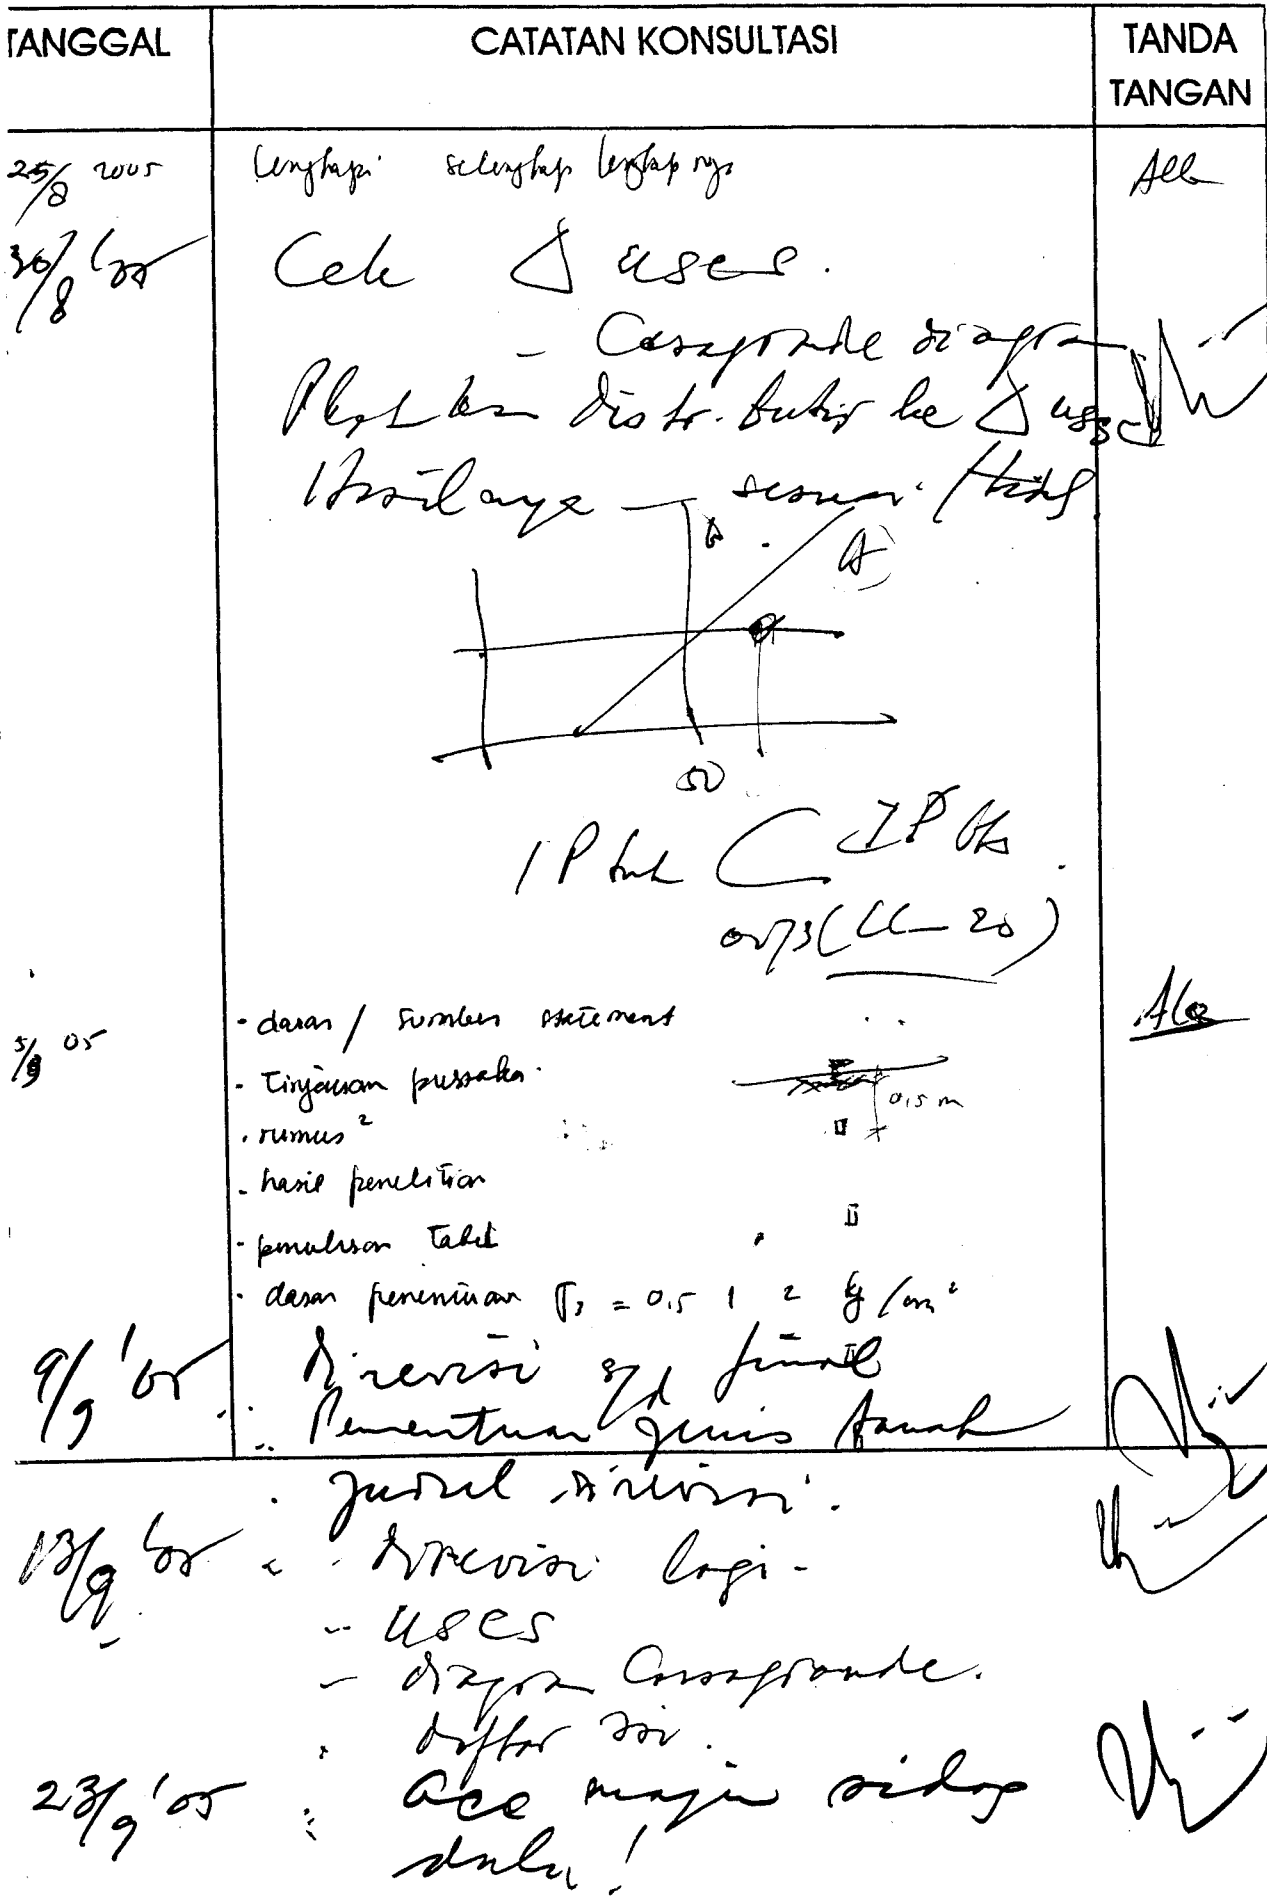 TANGGAL CATATAN KONSULTASI TANDA TANGAN
25/8 2005 lengkapi selengkap lengkapnya
30/8 '05 Cek Δ USCS.
- Casagrande diagram
Plotkan distr. butir ke Δ USCS
Hasilnya sesuai
A
50
IP
0,73 (LL - 20)
5/9 05 - dasar / sumber statement
- Tinjauan pustaka
0,5 m
- rumus²
- hasil penelitian
- penulisan Tabel
- dasar penentuan σ3 = 0,5 1 2 kg/cm²
9/9 '05 Direvisi s/d final
Penentuan jenis tanah
Judul direvisi.
13/9 '05 - Direvisi lagi -
- USCS
- diagram Casagrande.
daftar isi.
23/9 '05 Acc maju sidang
dulu!